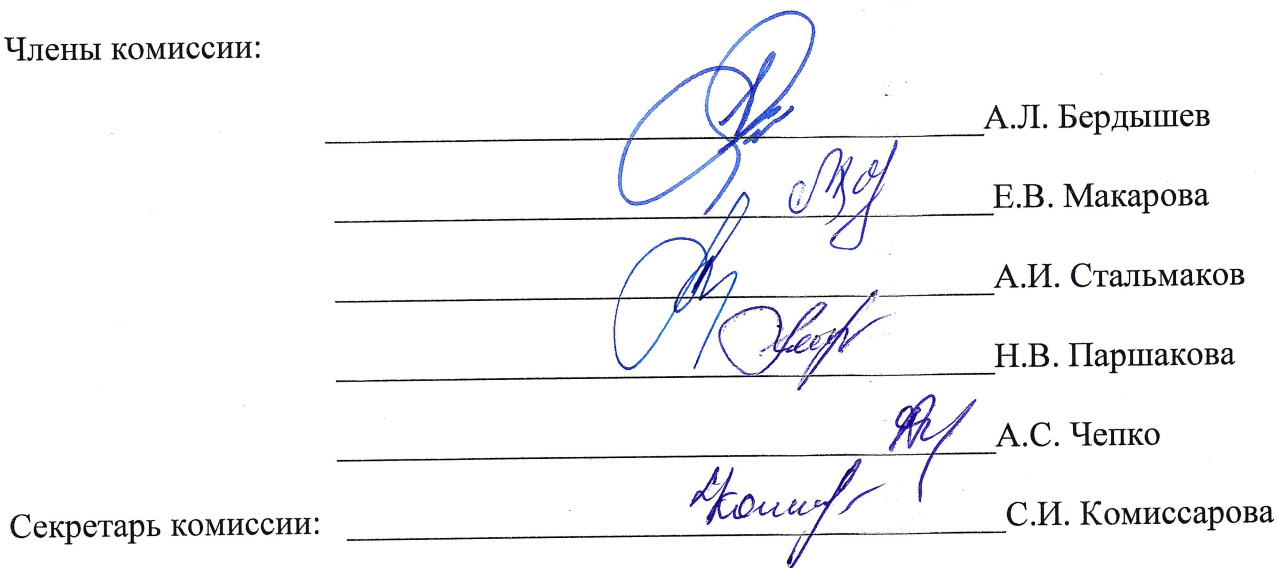 Члены комиссии:
А.Л. Бердышев
Е.В. Макарова
А.И. Стальмаков
Н.В. Паршакова
А.С. Чепко
Секретарь комиссии: С.И. Комиссарова